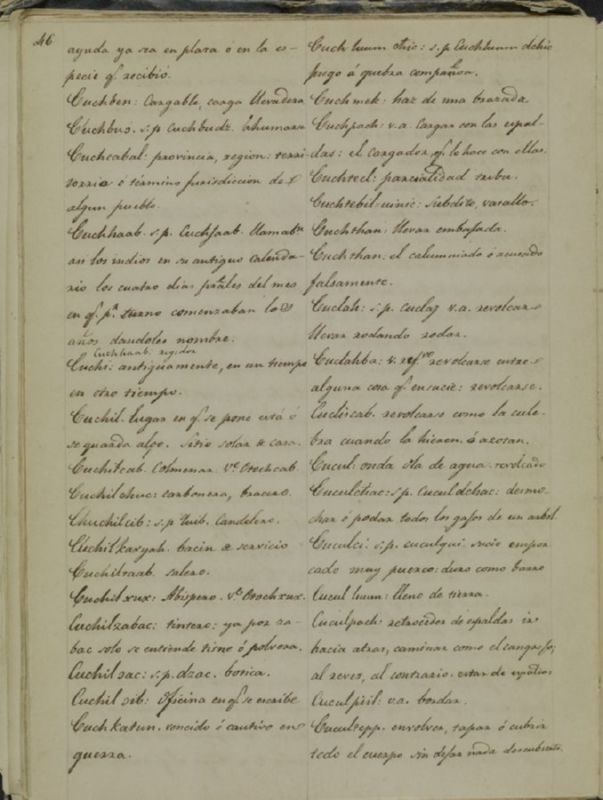 46
ayuda ya sea en plaza ó en la es-
pecie qe. recibió.
Cuchben: Cargable, carga llevadera
Cuchbuo. s.p. Cuchbudz. Ahumana
Cuchcabal: provincia, region: terri-
torrio ó término Jurisdiccion de
algun pueblo.
Cuchhaab. s.p. Cuchhaab. llamabn.
an los indios en su antiguo calenda-
rio los cuatro dias prales del mes
en qe. pr. turno comenzaban los
años dandoles nombre.
Cuchhaab. regidor
Cuchi: antiguamente, en un tiempo
en otro tiempo.
Cuchil. Lugar en qe. se pone está ó
se guarda algo. Sitio solar de casa.
Cuchilcab. Colmenar Ve. Otochcab
Cuchilchuc: carbonera, bracero.
Chuchilcib: s.p. Candelero.
Cuchilkaxyah. bacin de servicio
Cuchilraab. salero.
Cuchilxux: Abispero. Ve. Otochxux.
Cuchilzabac: tintero: ya por za-
bac solo se entiende tizne ó pólvora.
Cuchilzac: s.p. dzac. botica.
Cuchilzib: Oficina en qe. se escribe
Cuchkatun. vencido ó cautivo en
guerra.
Cuchluum s.p. Cuchluum
juego á quebra compañon.
Cuchmek: haz de una brazada.
Cuchpach: v.a. Cargar con las espal-
das: el cargador qe. lo hace con ellas.
Cuchteel: parcialidad tribu.
Cuchtebeluinic: Subdito, vasallo.
Cuchthan: llevar embajada.
Cuchthan. el calumniado ó acusado
falsamente.
Cuclah: s.p. cuclaz v.a. revolcar
llevar rodando rodar.
Cuclahba: v. refvo. revolcarse entre
alguna cosa qe. ensucie: revolcarse.
Cuclicab. revolcarse como la cule-
bra cuando la hieren ó azotan.
Cucul onda ola de agua. revolcado
Cuculchac: s.p. Cuculdchac: desmo-
char ó podar todos los gajos de un arbol.
Cuculci s.p. cuculqui sucio empor
cado muy puerco: duro como barro
Cucul luum: lleno de tierra.
Cuculpach: retroceder de espaldas ir
hacia atras, caminar como el cangrejo;
al reves, al contrario. estar de espaldas
Cuculpiil: v.a. bordar.
Cucultepp. envolver, tapar ó cubrir
todo el cuerpo sin dejar nada descubierto.